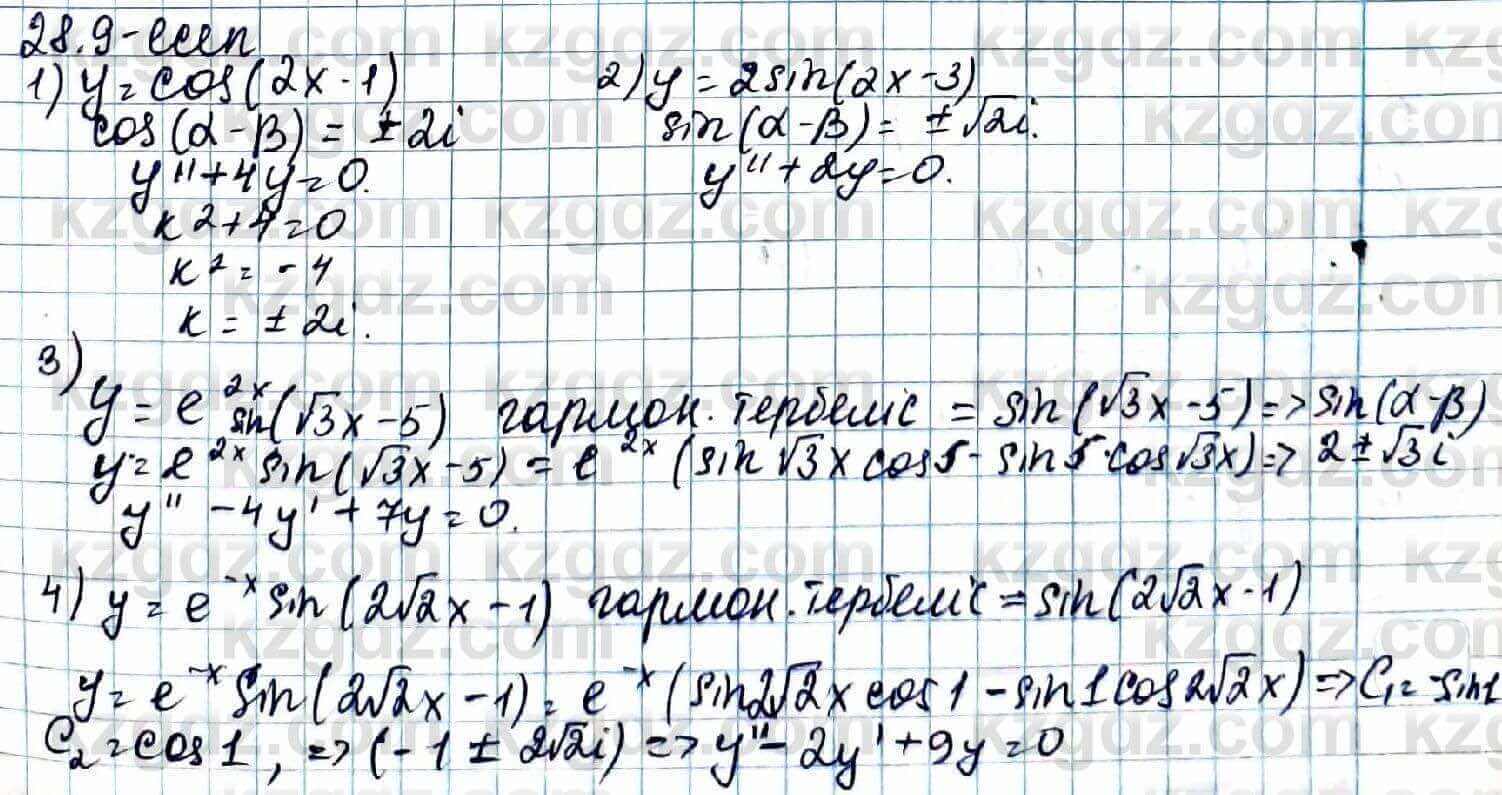 28.9-есеп
1) y = cos(2x - 1)
cos(α - β) = ± 2i
y'' + 4y = 0.
k² + 4 = 0
k² = - 4
k = ± 2i.
2) y = 2sin(2x - 3)
sin(α - β) = ± √2i.
y'' + 2y = 0.
3)
y = e^2x sin(√3x - 5) гармон. тербеліс = sin(√3x - 5) => sin(α - β)
y = e^2x sin(√3x - 5) = e^2x (sin √3x cos5 - sin5 · cos√3x) => 2 ± √3i
y'' - 4y' + 7y = 0.
4) y = e^-x sin(2√2x - 1) гармон. тербеліс = sin(2√2x - 1)
y = e^-x sin(2√2x - 1) = e^-x (sin2√2x cos1 - sin1 cos2√2x) => C₁ = -sin1
C₂ = cos1, => (-1 ± 2√2i) => y'' - 2y' + 9y = 0
kzgdz.com